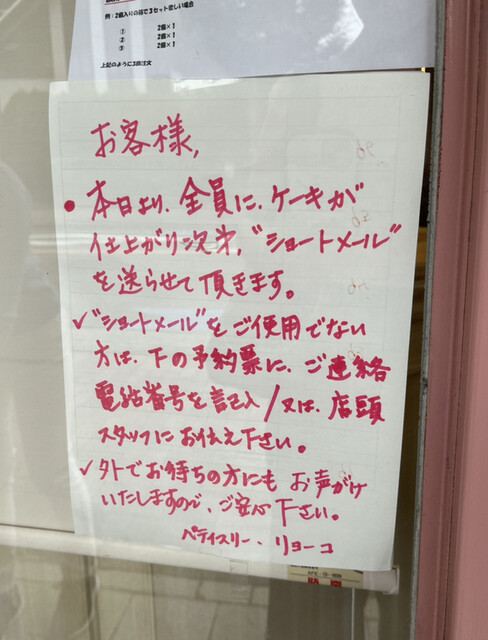 例：2個入りの箱で3セット欲しい場合
① 2個×1
② 2個×1
③ 2個×1
上記のように3回注文
お客様,
● 本日より、全員に、ケーキが
仕上がり次第, "ショートメール"
を送らせて頂きます。
✓"ショートメール"をご使用でない
方は、下の予約票に、ご連絡
電話番号を記入/又は、店頭
スタッフにお伝え下さい。
✓外でお待ちの方にも お声がけ
いたしますので、ご安心下さい。
パティスリー、リョーコ